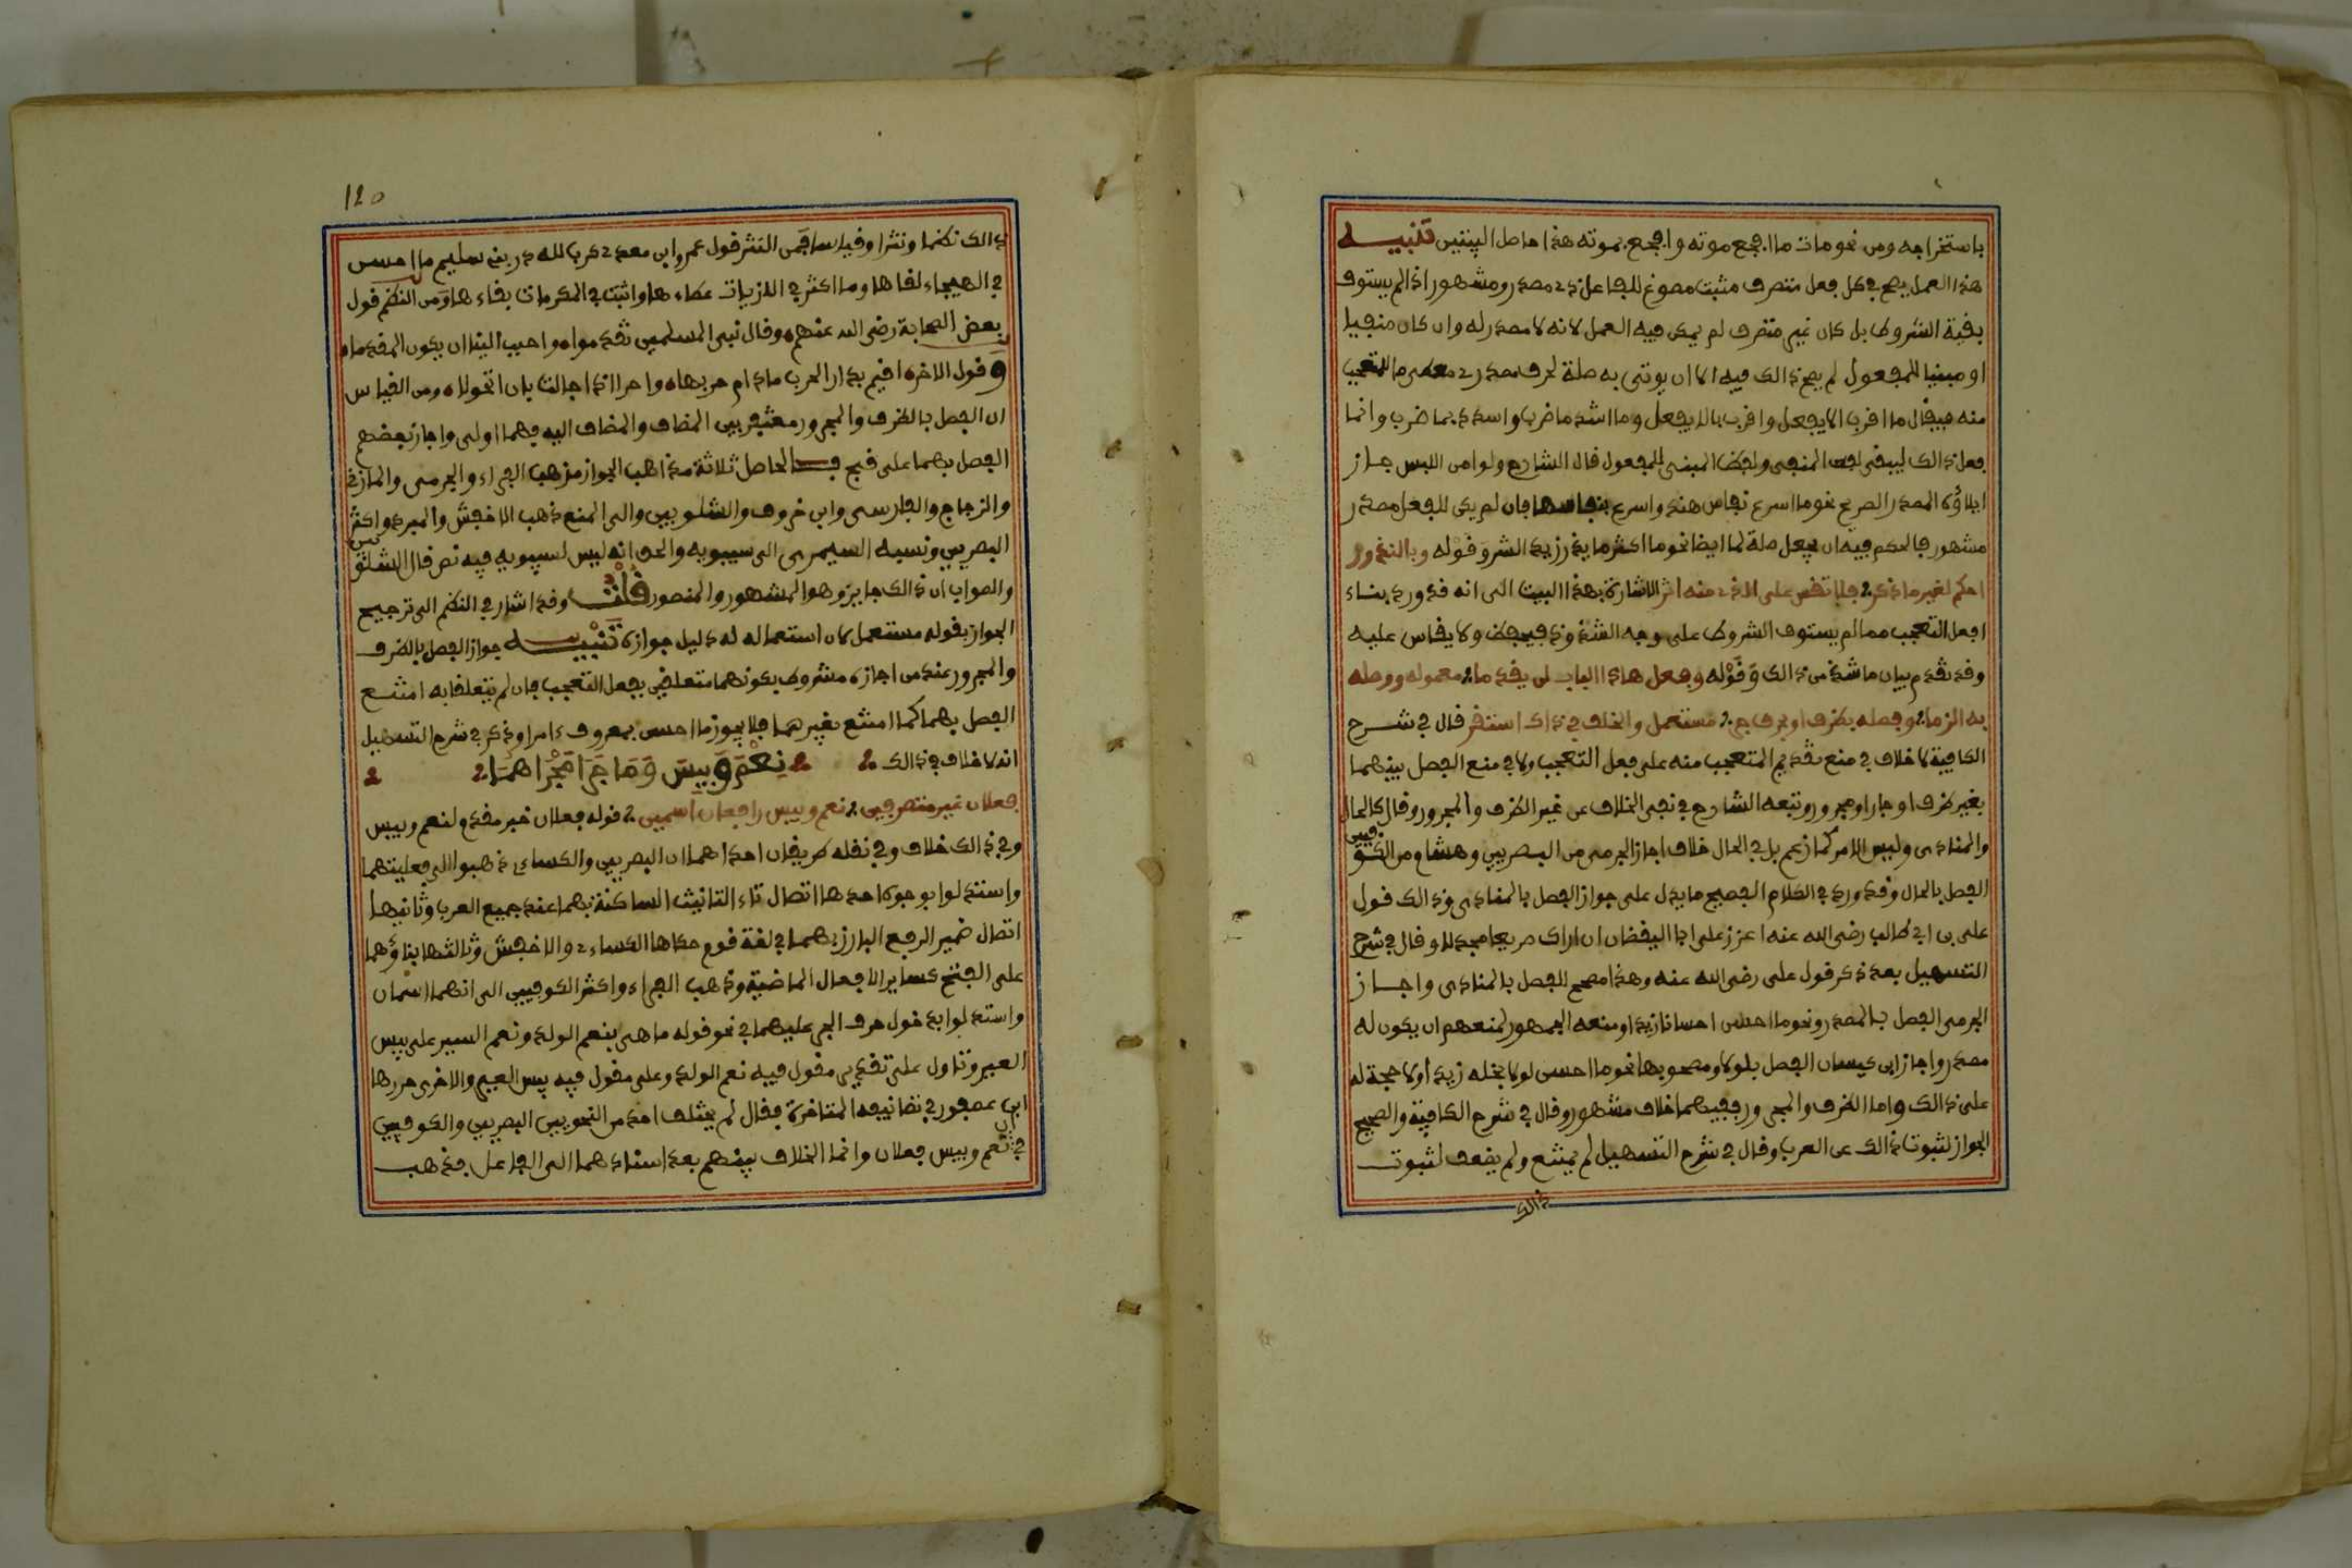 باستخراجه ومن نحو مات ما افجع موته وافجع بموته هذا حاصل البيتين تنبيه
هذا العمل يصح في كل فعل متصرف مثبت مصوغ للفاعل ذي مصدر ومشهور اذا لم يستوف
بقية الشروط بل كان غير متصرف لم يمكن فيه العمل لانه لا مصدر له وان كان منفيا
او مبنيا للمفعول لم يصح ذالك فيه الا ان يوتى به صلة لحرف مصدري معطى ما للمتعجب
منه فيقال ما اقرب الا يفعل واقرب بالا يفعل وما اشد ما ضرب واشدد بما ضرب وانما
فعل ذالك ليبقى لفظ المنفي ولفظ المبني للمفعول قال الشارح ولو امن اللبس جاز
ايلاؤه المصدر الصريح نحو ما اسرع نفاس هند واسرع بنفاسها فان لم يكن للفعل مصدر
مشهور فالحكم فيه ان يجعل صلة لما ايضا نحو ما اكثر ما يذر زيد الشر وقوله وبالندور
احكم لغير ما ذكر ولا تقس على الذي منه اثر الاشارة بهذا البيت الى انه قد ورد بناء
افعل التعجب مما لم يستوف الشروط على وجه الشذوذ فيحفظ ولا يقاس عليه
وقد تقدم بيان ما شذ من ذالك وقوله وفعل هاذا الباب لن يقدما معموله ووصله
به الزما وفصله بظرف او بحرف جر مستعمل والخلف في ذاك استقر قال في شرح
الكافية لا خلاف في منع تقديم المتعجب منه على فعل التعجب ولا في منع الفصل بينهما
بغير ظرف او جار ومجرور وتبعه الشارح في نفي الخلاف عن غير الظرف والمجرور وقال كالحال
والمنادى وليس الامر كما زعم بل في الحال خلاف اجاز الجرمي من البصريين وهشام من الكوفيين
الفصل بالحال وقد ورد في الكلام الفصيح ما يدل على جواز الفصل بالمنادى وذالك قول
علي بن ابي طالب رضي الله عنه اعزز علي ابا اليقضان ان اراك صريعا مجدلا وقال في شرح
التسهيل بعد ذكر قول علي رضي الله عنه وهذا مصحح للفصل بالمنادى واجاز
الجرمي الفصل بالمصدر ونحو ما احسن احسانا زيدا ومنعه الجمهور لمنعهم ان يكون له
مصدر واجاز ابن كيسان الفصل بلولا ومصحوبها نحو ما احسن لولا بخله زيدا ولا حجة له
على ذالك واما الظرف والمجرور ففيهما خلاف مشهور وقال في شرح الكافية والصحيح
الجواز لثبوت ذالك عن العرب وقال في شرح التسهيل لم يمتنع ولم يضعف لثبوت
ذالك
120
ذالك نظما ونثرا وقياسا فمن النثر قول عمرو ابن معدي كرب لله در بني سليم ما احسن
في الهيجاء لقاها وما اكثر في اللزبات عطاءها واثبت في المكرمات بقاءها ومن النظم قول
بعض الصحابة رضي الله عنهم وقال نبي المسلمين تقدموا واحبب الينا ان يكون المقدما
وقول الاخر اقيم بدار الحرب مادام حربها واحر اذا حالت بان اتحولا ومن القياس
ان الفصل بالظرف والمجرور مغتفر بين المضاف والمضاف اليه فهما اولى واجاز بعضهم
الفصل بهما على قبح فالحاصل ثلاثة مذاهب الجواز مذهب الفراء والجرمي والمازني
والزجاج والفارسي وابن خروف والشلوبين والى المنع ذهب الاخفش والمبرد واكثر
البصريين ونسبه السيمري الى سيبويه والحق انه ليس لسيبويه فيه نص قال الشلوبين
والصواب ان ذالك جايز وهو المشهور والمنصور قلت وقد اشار في النظم الى ترجيح
الجواز بقوله مستعمل لان استعماله له دليل جوازه تنبيه جواز الفصل بالظرف
والمجرور عند من اجازه مشروط بكونهما متعلقين بفعل التعجب فان لم يتعلقا به امتنع
الفصل بهما كما امتنع بغيرهما فلا يجوز ما احسن بمعروف ءامرا وذكر في شرح التسهيل
انه لا خلاف في ذالك نِعْمَ وَبِيسَ وَمَا جَرَا مَجْرَاهُمَا
فعلان غير متصرفين نعم وبيس رافعان اسمين قوله فعلان خبر مقدم ولنعم وبيس
وفي ذالك خلاف وفي نقله طريقان احداهما ان البصريين والكساءي ذهبوا الى فعليتهما
واستدلوا بوجوه احدها اتصال تاء التانيث الساكنة بهما عند جميع العرب وثانيها
اتصال ضمير الرفع البارز بهما في لغة قوم حكاها الكساءي والاخفش وثالثها بناؤهما
على الفتح كساير الافعال الماضية وذهب الفراء واكثر الكوفيين الى انهما اسمان
واستدلوا بدخول حرف الجر عليهما في نحو قوله ما هي بنعم الولد ونعم السير على بيس
العير وتاول على تقدير مقول فيه نعم الولد وعلى مقول فيه بيس العير والاخرى حررها
ابن عصفور في تصانيفه المتاخرة فقال لم يختلف احد من النحويين البصريين والكوفيين
في ان نعم وبيس فعلان وانما الخلاف بينهم بعد اسنادهما الى الفاعل فذهب